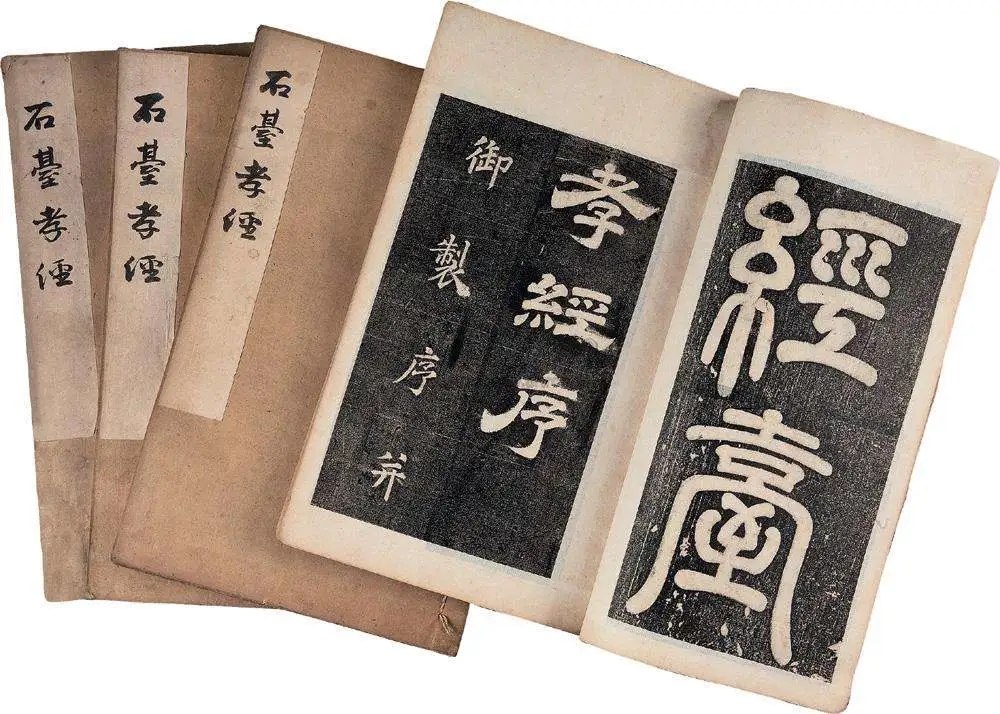 石臺孝經
石臺孝經
石臺孝經
經臺
孝經序
御製序并